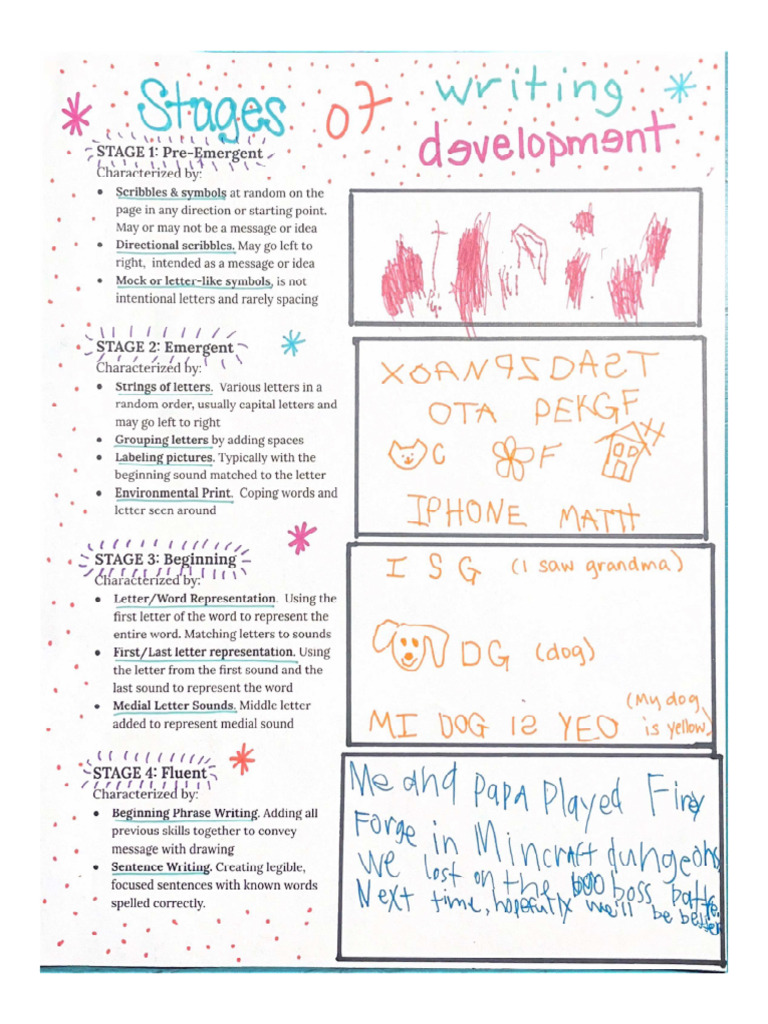 Stages of writing
development
STAGE 1: Pre-Emergent
Characterized by:
• Scribbles & symbols at random on the
page in any direction or starting point.
May or may not be a message or idea
• Directional scribbles. May go left to
right, intended as a message or idea
• Mock or letter-like symbols, is not
intentional letters and rarely spacing
STAGE 2: Emergent
Characterized by:
• Strings of letters. Various letters in a
random order, usually capital letters and
may go left to right
• Grouping letters by adding spaces
• Labeling pictures. Typically with the
beginning sound matched to the letter
• Environmental Print. Coping words and
letter seen around
OTA PEKGF
C F
IPHONE MATH
STAGE 3: Beginning
Characterized by:
• Letter/Word Representation. Using the
first letter of the word to represent the
entire word. Matching letters to sounds
• First/Last letter representation. Using
the letter from the first sound and the
last sound to represent the word
• Medial Letter Sounds. Middle letter
added to represent medial sound
I S G (I saw grandma)
DG (dog)
MI DOG IS YEO (My dog
is yellow)
STAGE 4: Fluent
Characterized by:
• Beginning Phrase Writing. Adding all
previous skills together to convey
message with drawing
• Sentence Writing. Creating legible,
focused sentences with known words
spelled correctly.
Me and PaPA Played Firey
Forge in Mincraft dungeons,
We lost on the boss battle.
Next time, hopefully we'll be better